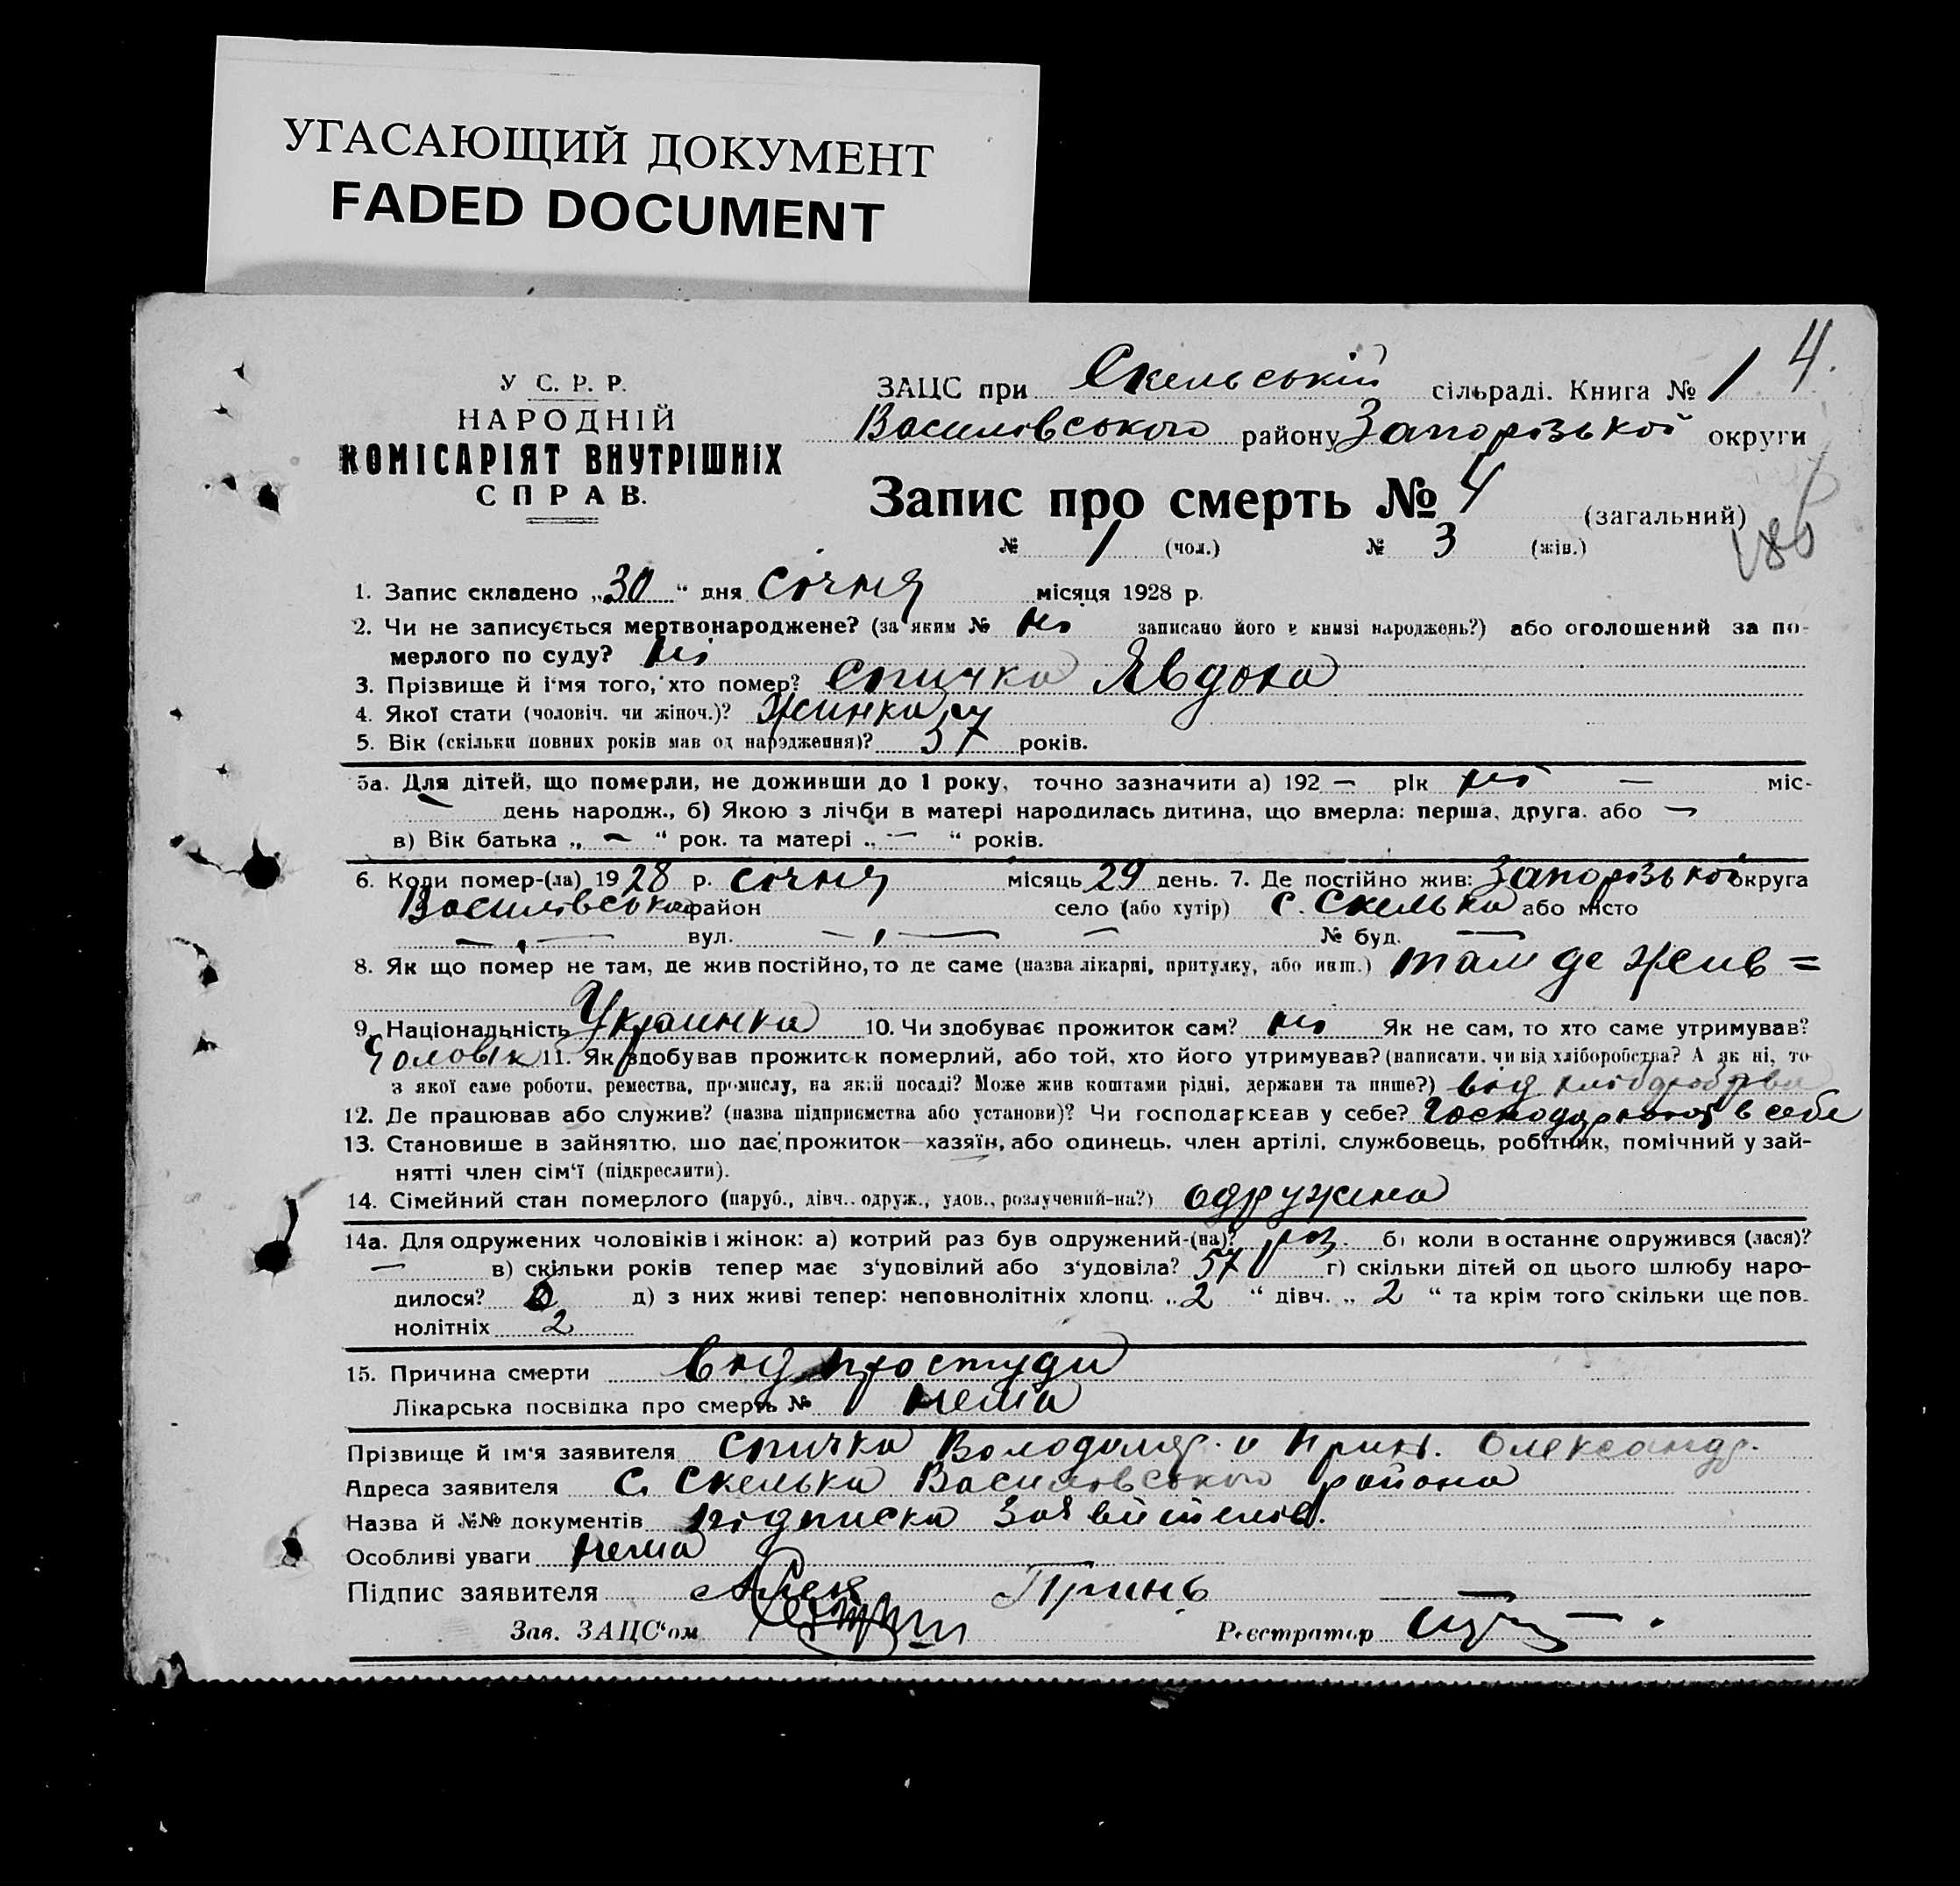 УГАСАЮЩИЙ ДОКУМЕНТ
FADED DOCUMENT
4.
У С. Р. Р.
НАРОДНІЙ
КОМІСАРІЯТ ВНУТРІШНІХ
СПРАВ.
ЗАЦС при Скельській сільраді. Книга № 1
Василівського району Запорізької округи
Запис про смерть № 4 (загальний)
№ 1 (чол.) № 3 (жін.)
1. Запис складено „30“ дня січня місяця 1928 р.
2. Чи не записується мертвонароджене? (за яким № ні записано його в книзі народжень?) або оголошений за по-
мерлого по суду? ні
3. Прізвище й і'мя того, хто помер? Спичка Явдоха
4. Якої стати (чоловіч. чи жіноч.)? Жинка
5. Вік (скільки повних років мав од народження)? 57 років.
5а. Для дітей, що померли, не доживши до 1 року, точно зазначити а) 192 — рік ні — міс-
— день народж., б) Якою з лічби в матері народилась дитина, що вмерла: перша, друга. або —
в) Вік батька „ — “ рок. та матері „ — “ років.
6. Коли помер-(ла) 1928 р. січня місяць 29 день. 7. Де постійно жив: Запорізькой округа
Василівська район село (або хутір) с. Скелька або місто
— вул. — № буд. —
8. Як що помер не там, де жив постійно, то де саме (назва лікарні, притулку, або инш.) там де жив =
9. Національність Украинка 10. Чи здобуває прожиток сам? ні Як не сам, то хто саме утримував?
Чоловік 11. Як здобував прожиток померлий, або той, хто його утримував? (написати, чи від хліборобства? А як ні, то
з якої саме роботи, ремества, промислу, на якій посаді? Може жив коштами рідні, держави та инше?) від
12. Де працював або служив? (назва підприємства або установи)? Чи господарював у себе? в себе
13. Становише в зайняттю, що дає прожиток—хазяїн, або одинець, член артілі, службовець, робітник, помічний у зай-
нятті член сім'ї (підкреслити).
14. Сімейний стан померлого (паруб., дівч., одруж., удов., розлучений-на?) одружена
14а. Для одружених чоловіків і жінок: а) котрий раз був одружений-(на)? 1 раз. б) коли востаннє одружився (лася)?
— в) скільки років тепер має з'удовілий або з'удовіла? 57 г) скільки дітей од цього шлюбу наро-
дилося? д) з них живі тепер: неповнолітніх хлопц. „2“ дівч. „2“ та крім того скільки ще пов-
нолітніх 2
15. Причина смерти від простуди
Лікарська посвідка про смерть № нема
Прізвище й ім'я заявителя Спичка Володимир. и Принь. Олександр.
Адреса заявителя С. Скелька Василовського района
Назва й №№ документів підписка заявителів.
Особливі уваги нема
Підпис заявителя Принь
Зав. ЗАЦС'ом
Реєстратор